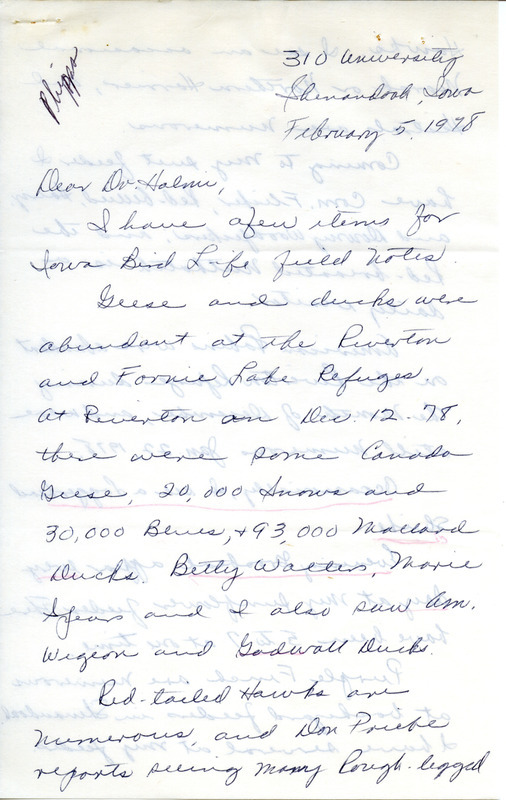 Phipps
310 University
Shenandoah, Iowa
February 5, 1978
Dear Dr. Halmi,
I have a few items for
Iowa Bird Life field notes.
Geese and ducks were
abundant at the Riverton
and Forney Lake Refuges.
At Riverton on Dec. 12-78,
there were some Canada
Geese, 20,000 Snows and
30,000 Blues, + 93,000 Mallard
Ducks. Betty Walters, Marie
Spears and I also saw Am.
Wigeon and Gadwall Ducks.
Red-tailed Hawks are
numerous, and Don Priebe
reports seeing many Rough-legged